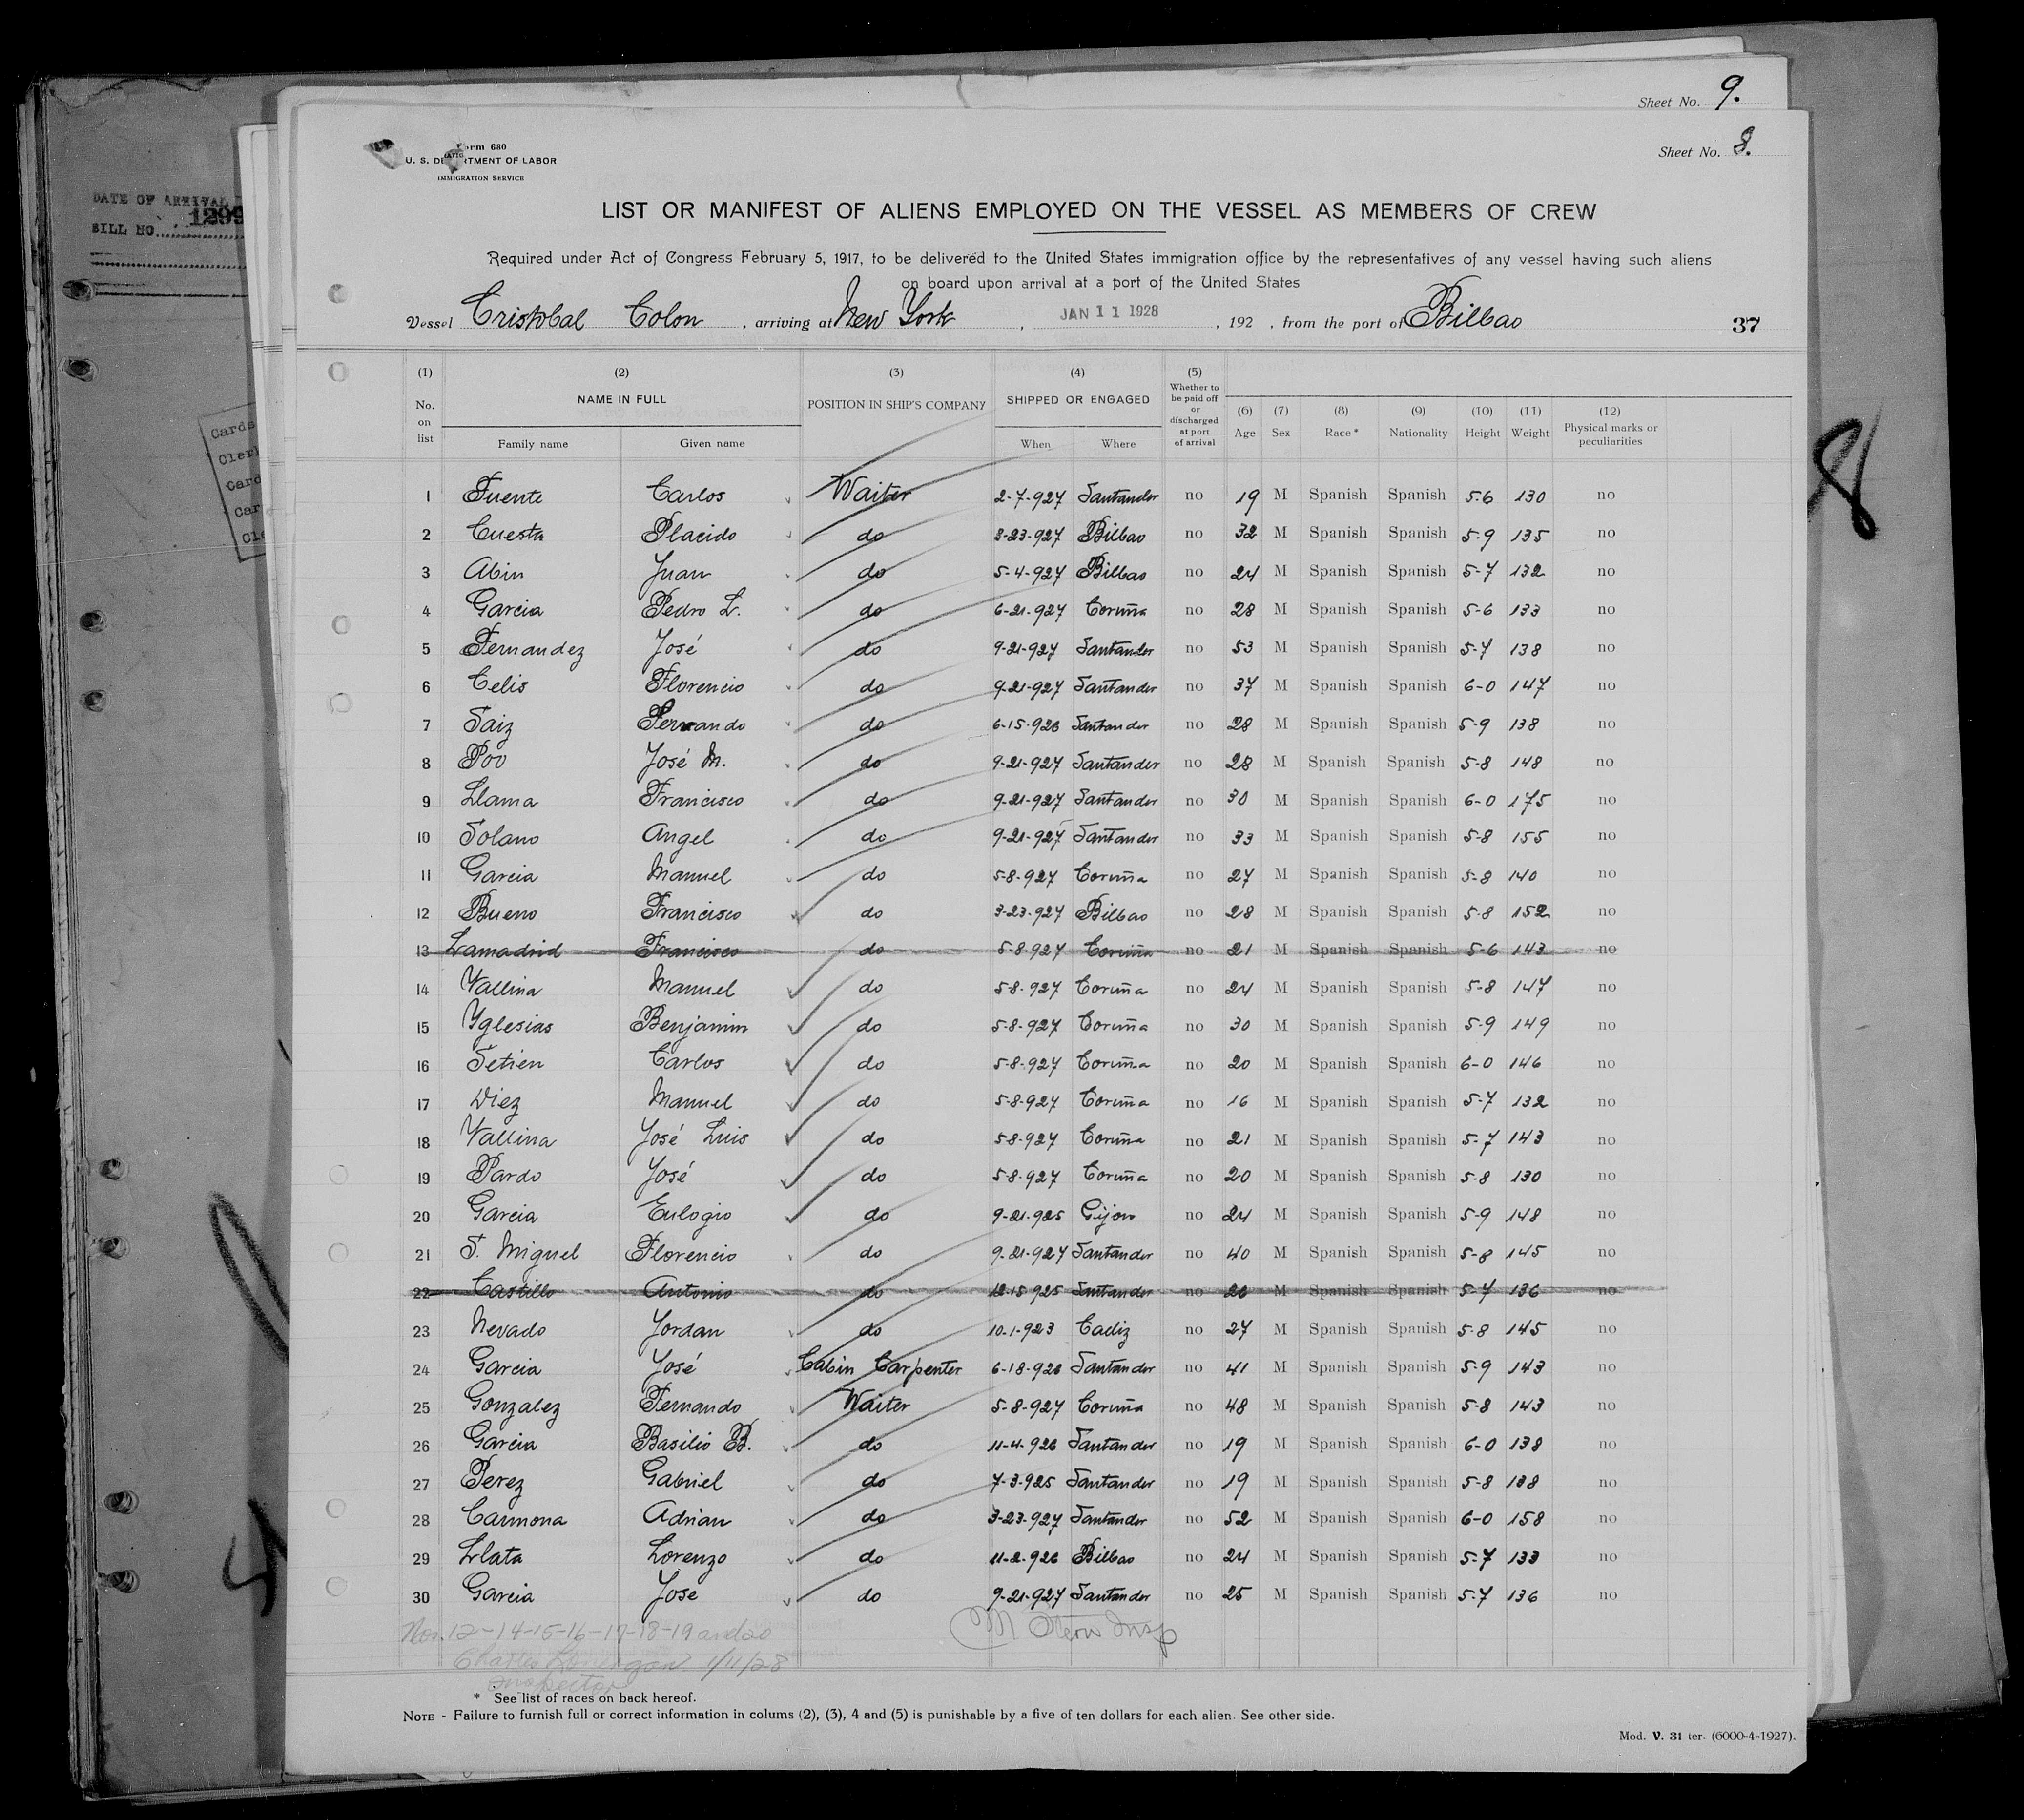 Sheet No. 9.
Sheet No. 8.
Form 680
U. S. DEPARTMENT OF LABOR
IMMIGRATION SERVICE
DATE OF ARRIVAL
BILL NO. 1299
LIST OR MANIFEST OF ALIENS EMPLOYED ON THE VESSEL AS MEMBERS OF CREW
Required under Act of Congress February 5, 1917, to be delivered to the United States immigration office by the representatives of any vessel having such aliens
on board upon arrival at a port of the United States
Vessel Cristobal Colon, arriving at New York, JAN 11 1928, 192 , from the port of Bilbao 37
(1) (2) (3) (4) (5)
No. on list NAME IN FULL POSITION IN SHIP'S COMPANY SHIPPED OR ENGAGED Whether to be paid off or discharged at port of arrival (6) Age (7) Sex (8) Race* (9) Nationality (10) Height (11) Weight (12) Physical marks or peculiarities
Family name Given name When Where
1 Fuente Carlos Waiter 2-7-927 Santander no 19 M Spanish Spanish 5-6 130 no
2 Cuesta Placido do 3-23-927 Bilbao no 32 M Spanish Spanish 5-9 135 no
3 Abin Juan do 5-4-927 Bilbao no 24 M Spanish Spanish 5-7 132 no
4 Garcia Pedro L. do 6-21-927 Coruña no 28 M Spanish Spanish 5-6 133 no
5 Fernandez José do 9-21-927 Santander no 53 M Spanish Spanish 5-7 138 no
6 Celis Florencio do 9-21-927 Santander no 37 M Spanish Spanish 6-0 147 no
7 Saiz Fernando do 6-15-926 Santander no 28 M Spanish Spanish 5-9 138 no
8 Poo José M. do 9-21-927 Santander no 28 M Spanish Spanish 5-8 148 no
9 Llama Francisco do 9-21-927 Santander no 30 M Spanish Spanish 6-0 175 no
10 Solano Angel do 9-21-927 Santander no 33 M Spanish Spanish 5-8 155 no
11 Garcia Manuel do 5-8-927 Coruña no 27 M Spanish Spanish 5-8 140 no
12 Bueno Francisco do 3-23-927 Bilbao no 28 M Spanish Spanish 5-8 152 no
13 Lamadrid Francisco do 5-8-927 Coruña no 21 M Spanish Spanish 5-6 143 no
14 Vallina Manuel do 5-8-927 Coruña no 24 M Spanish Spanish 5-8 147 no
15 Yglesias Benjamin do 5-8-927 Coruña no 30 M Spanish Spanish 5-9 149 no
16 Setien Carlos do 5-8-927 Coruña no 20 M Spanish Spanish 6-0 146 no
17 Diez Manuel do 5-8-927 Coruña no 16 M Spanish Spanish 5-7 132 no
18 Vallina José Luis do 5-8-927 Coruña no 21 M Spanish Spanish 5-7 143 no
19 Pardo José do 5-8-927 Coruña no 20 M Spanish Spanish 5-8 130 no
20 Garcia Eulogio do 9-21-925 Gijon no 24 M Spanish Spanish 5-9 148 no
21 S. Miguel Florencio do 9-21-927 Santander no 40 M Spanish Spanish 5-8 145 no
22 Castillo Antonio do 12-15-925 Santander no M Spanish Spanish 5-7 136 no
23 Nevado Jordan do 10-1-923 Cadiz no 27 M Spanish Spanish 5-8 145 no
24 Garcia José Cabin Carpenter 6-18-926 Santander no 41 M Spanish Spanish 5-9 143 no
25 Gonzalez Fernando Waiter 5-8-927 Coruña no 48 M Spanish Spanish 5-8 143 no
26 Garcia Basilio B. do 11-4-926 Santander no 19 M Spanish Spanish 6-0 138 no
27 Perez Gabriel do 7-3-925 Santander no 19 M Spanish Spanish 5-8 138 no
28 Carmona Adrian do 3-23-927 Santander no 52 M Spanish Spanish 6-0 158 no
29 Llata Lorenzo do 11-2-926 Bilbao no 24 M Spanish Spanish 5-7 133 no
30 Garcia Jose do 9-21-927 Santander no 25 M Spanish Spanish 5-7 136 no
Nos. 12-14-15-16-17-18-19 and 20
Charles 1/11/28
Inspector
* See list of races on back hereof.
NOTE - Failure to furnish full or correct information in colums (2), (3), 4 and (5) is punishable by a five of ten dollars for each alien. See other side.
Mod. V. 31 ter. (6000-4-1927).